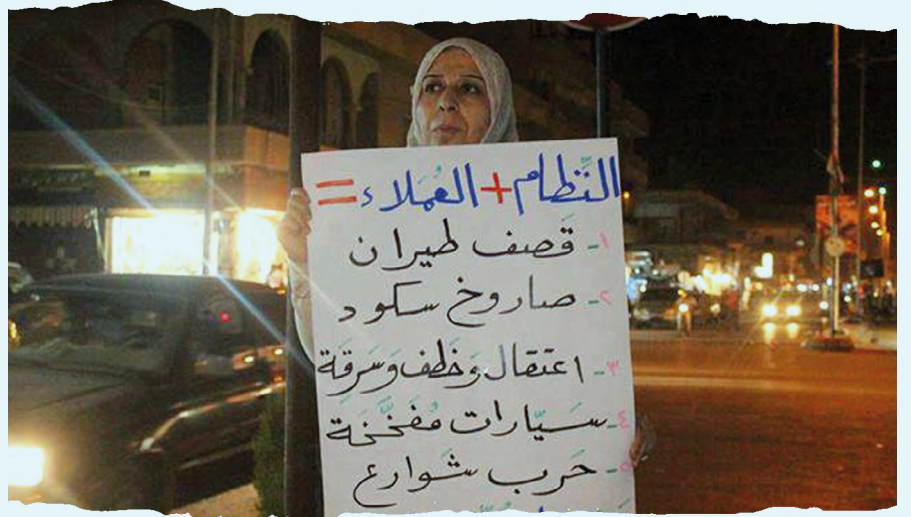 النّظام + العُملاء =
١- قَصف طيران
٢- صاروخ سكود
٣- اعتقال وَخَطف وَسَرقَة
٤- سَيّارات مُفَخَّخة
٥- حَرب شَوارع